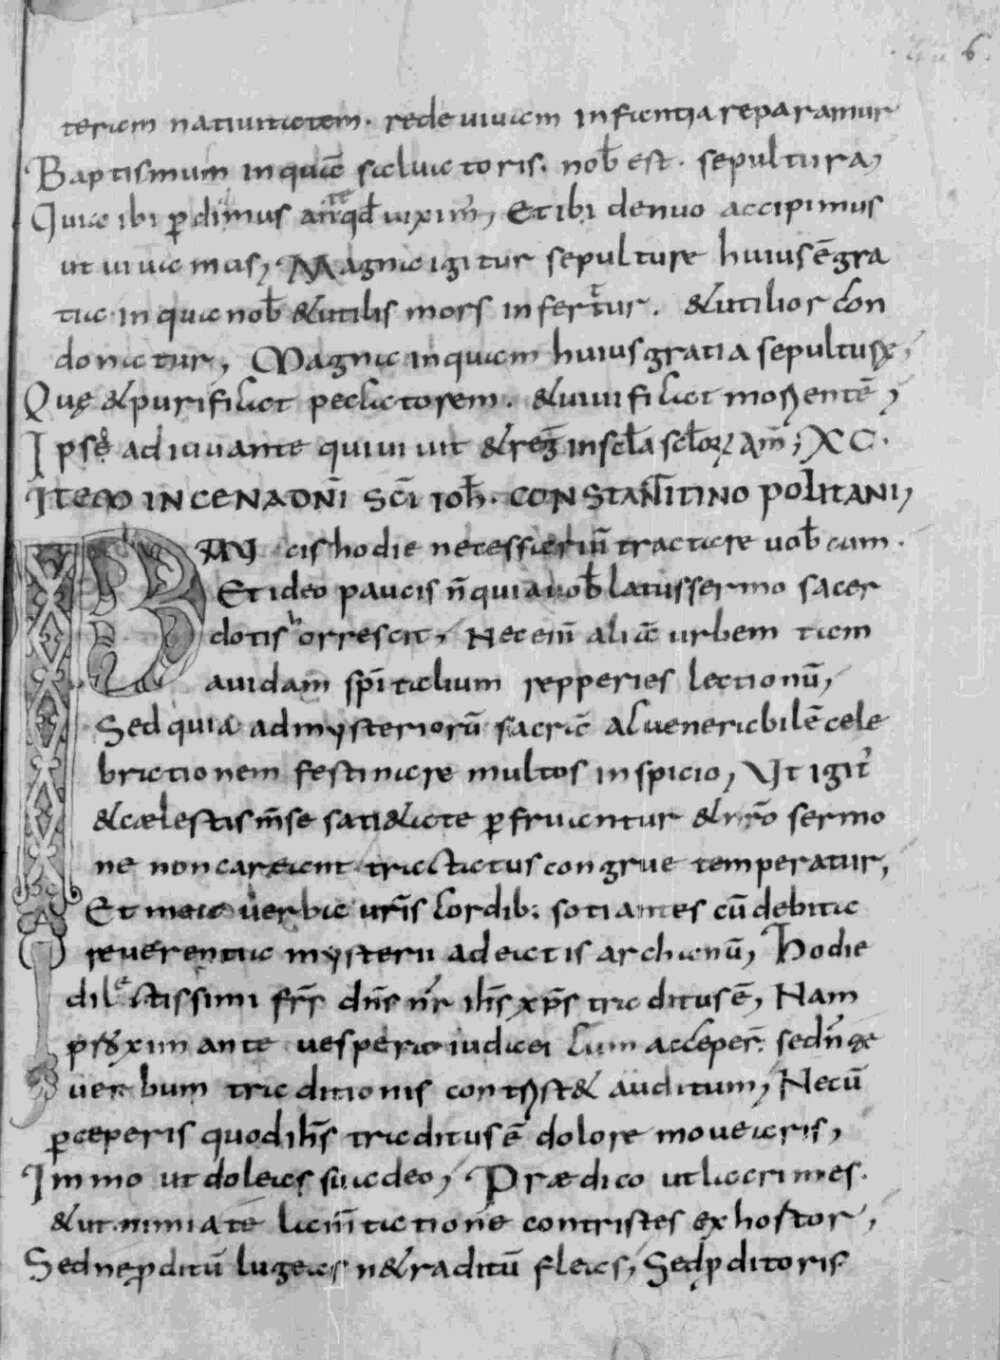 6.
teriam nativitatem. redeviviam infantia reparamur
Baptismum inquā salvatoris. nob̄ est. sepultura,
Quia ibi p̄dimus anteqd̄ uixim̄, Et ibi denuo accipimus
ut uiuamus, Magna igitur sepulture huius ē gra
tia in qua nob̄ & utilis mors infertur. & utilior con
donatur, Magna inquam huius gratia sepulturę,
Quę & purificat peccatorem. & uiuificat morientē,
Ipsę adiuuante qui uiuit & reḡ in scl̄a scl̄oꝝ am̄; XC.
Item in cena dn̄i sc̄i ioh̄. constantinopolitani,
Paucis hodie necessariū tractare uob̄cum.
Et ideo paucis n̄ quia uob̄ latus sermo sacer
dotis horrescit, Nec enim̄ aliā urbem tam
auidam sp̄italium repperies lectionū,
Sed quia ad mysteriorū sacrā ac uenerabilē cele
brationem festinare multos inspicio, Ut igit̄
& cælestis m̄se satietate p̄fruantur & nr̄o sermo
ne non careant tractatus congrue temperatur,
Et mea uerba ur̄is cordib; sociantes cū debita
reuerentia mysterii adeatis archanū, Hodie
dilectissimi fr̄s dn̄s nr̄ ih̄s xp̄s traditus ē, Nam
proxim ante uespera iudaei cum acceper̄. sed n̄ ge
uerbum traditionis contrist& auditum, Nec ū
p̄ceperis quod ih̄s traditus ē dolore mouearis,
Immo ut doleas suadeo, Prædico ut lacrimes.
& ut nimia te lam̄tatione contristes exhortor,
Sed ne p̄ditū lugeas n& raditū fleas, Sed p̄ditoris